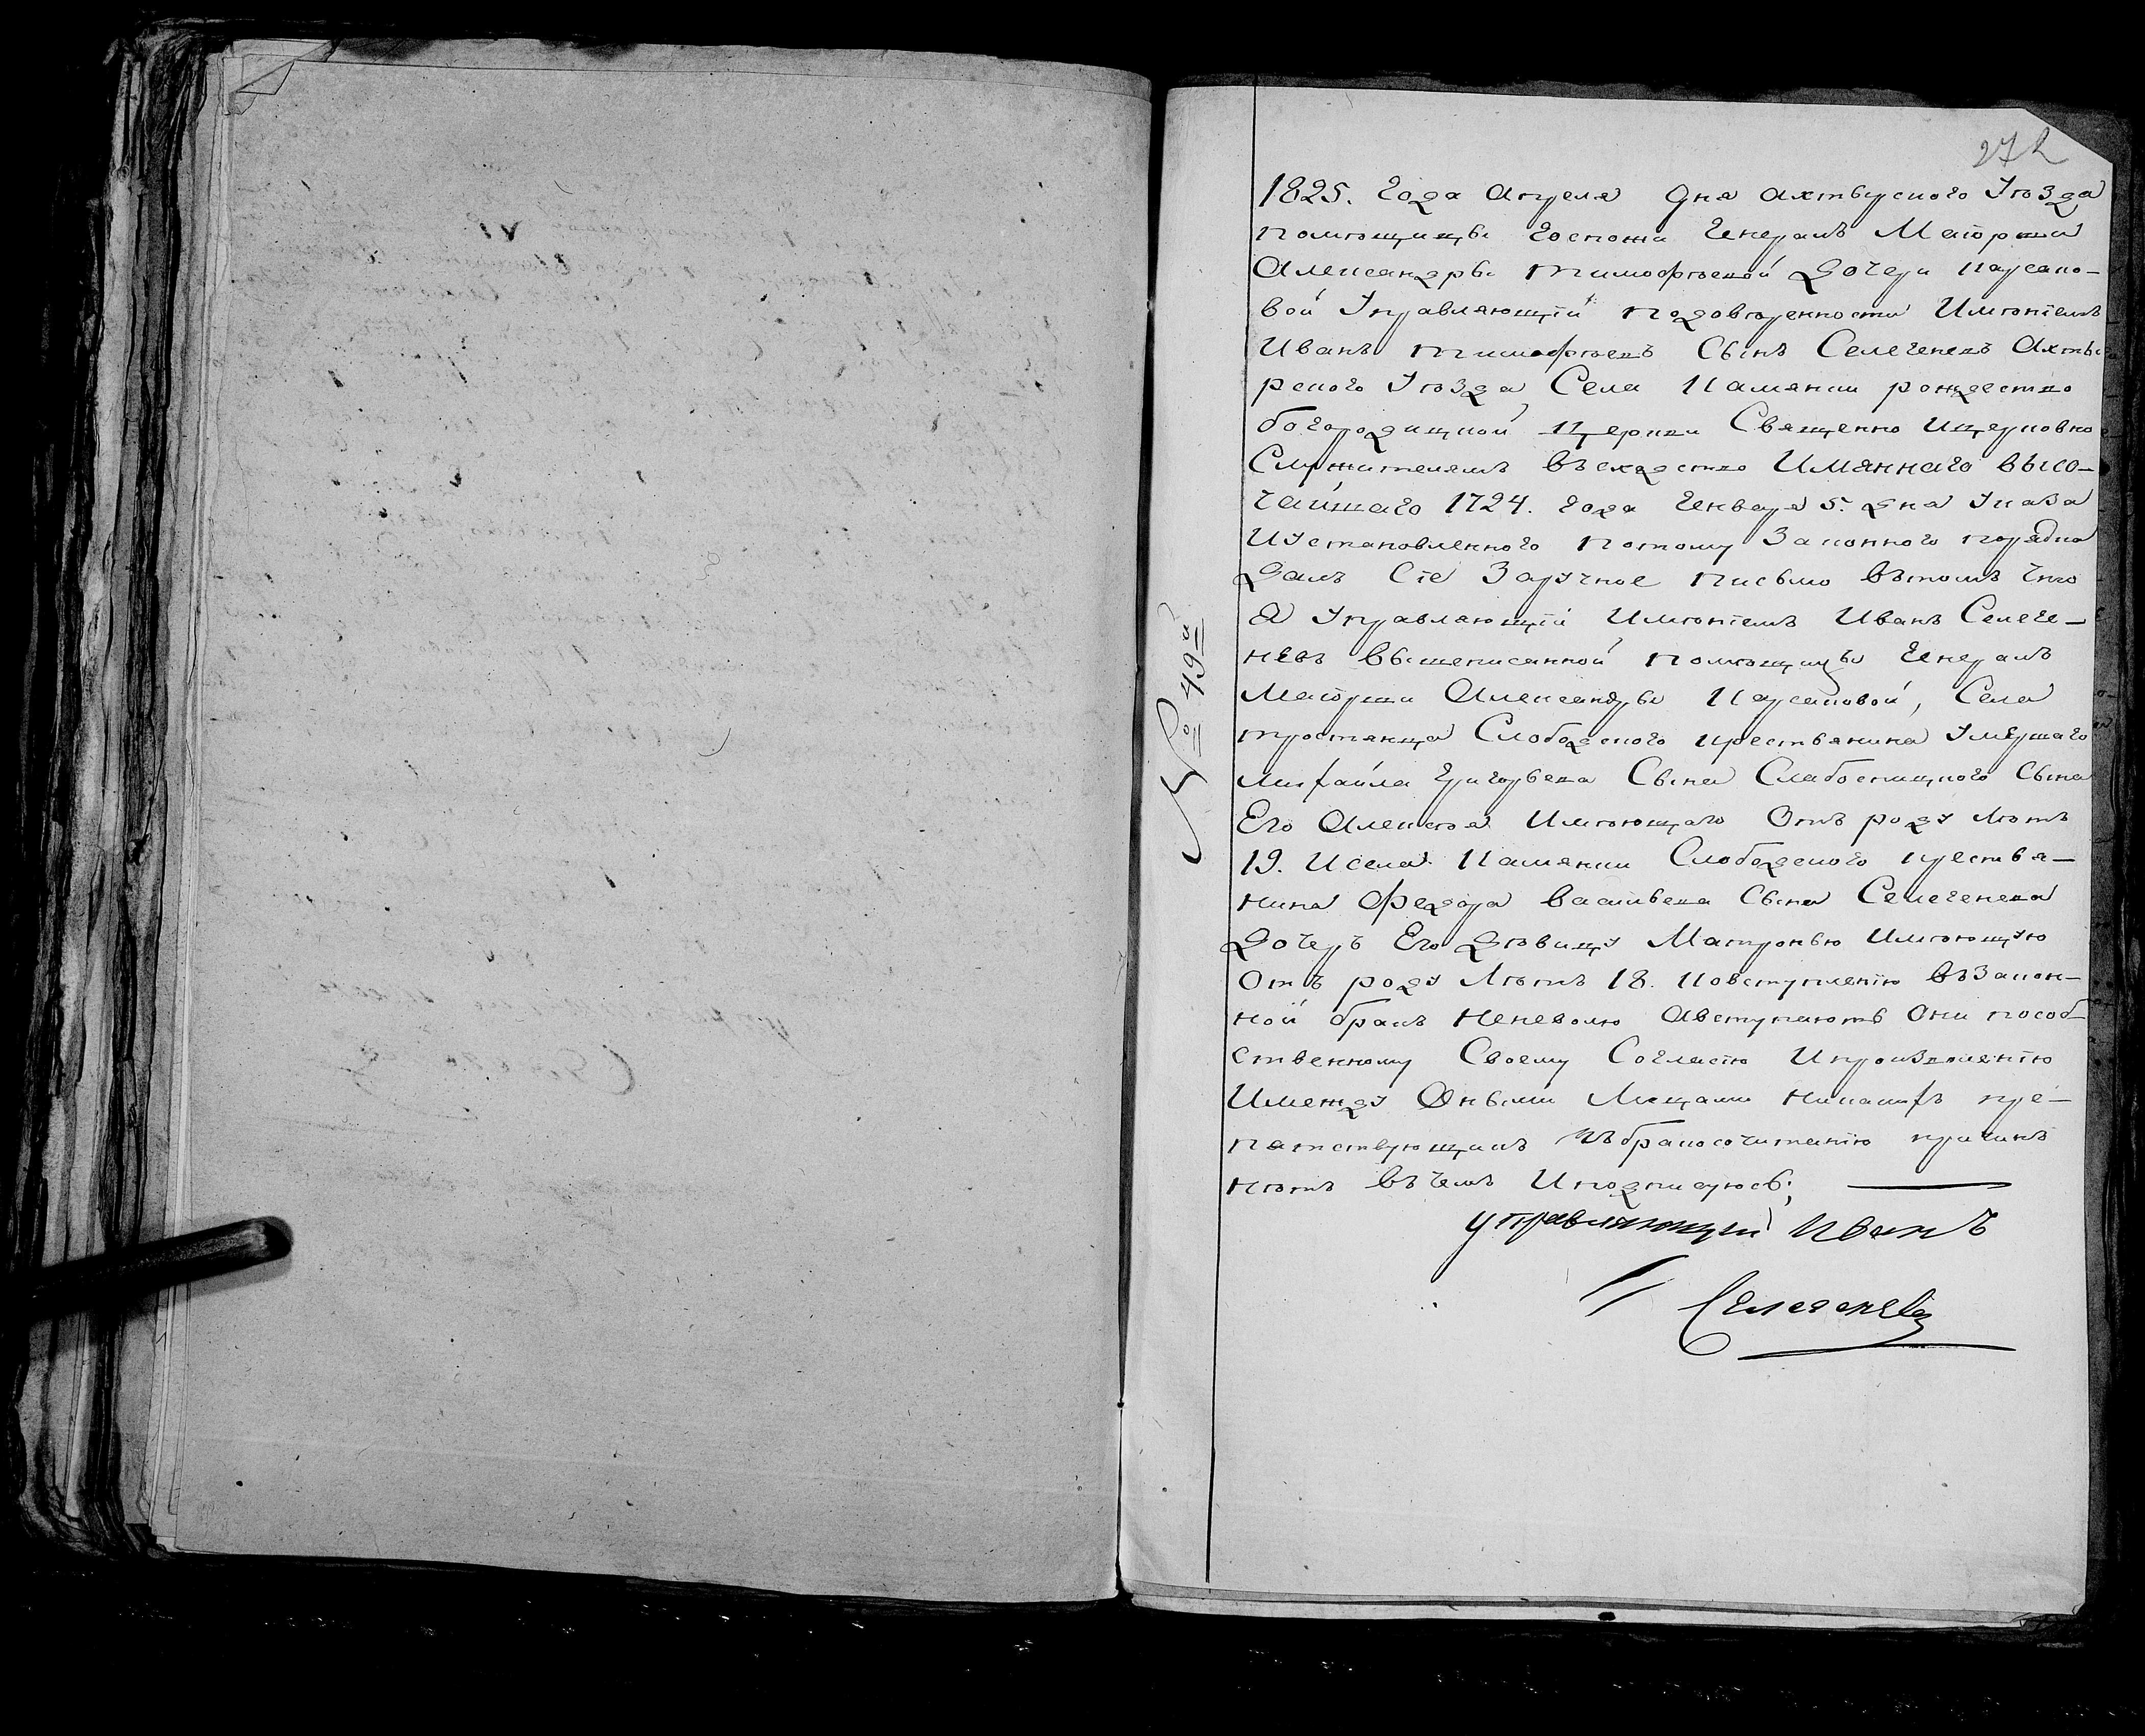 272
1825. Года Апреля Дня Ахтырского Уѣзда
помѣщицы Госпожи Генералъ Маіорши
Александры Тимофѣевой Дочери Корсако-
вой Управляющій подовѣренности Имѣніемъ
Иванъ Тимофѣевъ Сынъ Селегеневъ Ахты-
рского Уѣзда Села Камянки рождество
богородицкой Церкви Священно Ицерковно
Служителямъ Въсходство Имяннаго высо-
чайшаго 1724. Года Генваря 5. дня Указа
Иустановленного потому Законного порядка
Далъ Сіе Заручное письмо вътомъ что
Я Управляющій Имѣніемъ Иванъ Селеге-
невъ Вышеписанной помѣщицы Генералъ
Маіорши Александры Корсаковой, Села
тростянца Слободского крестьянина Умершаго
Михайла Григорьева Сына Слабоспицкого Сына
Его Алексѣя Имѣющаго Отъ роду лѣтъ
19. Исела Камянки Слободского крестья-
нина Федора васильева Сына Селегенева
Дочеръ Его Дѣвицу Матроню Имѣющую
Отъ роду Лѣтъ 18. Ковступленію Въ Закон-
ной бракъ Неневолю Авступаютъ Они пособ-
ственному Своему Согласію Ипроизволенію
Имежду Оными Лицами Никакихъ пре-
пятствующихъ Къбракосочитанію причинъ
Нѣтъ Въ чемъ Иподписуюсь;
управляющій Иванъ
Селегеневъ
№ 49й